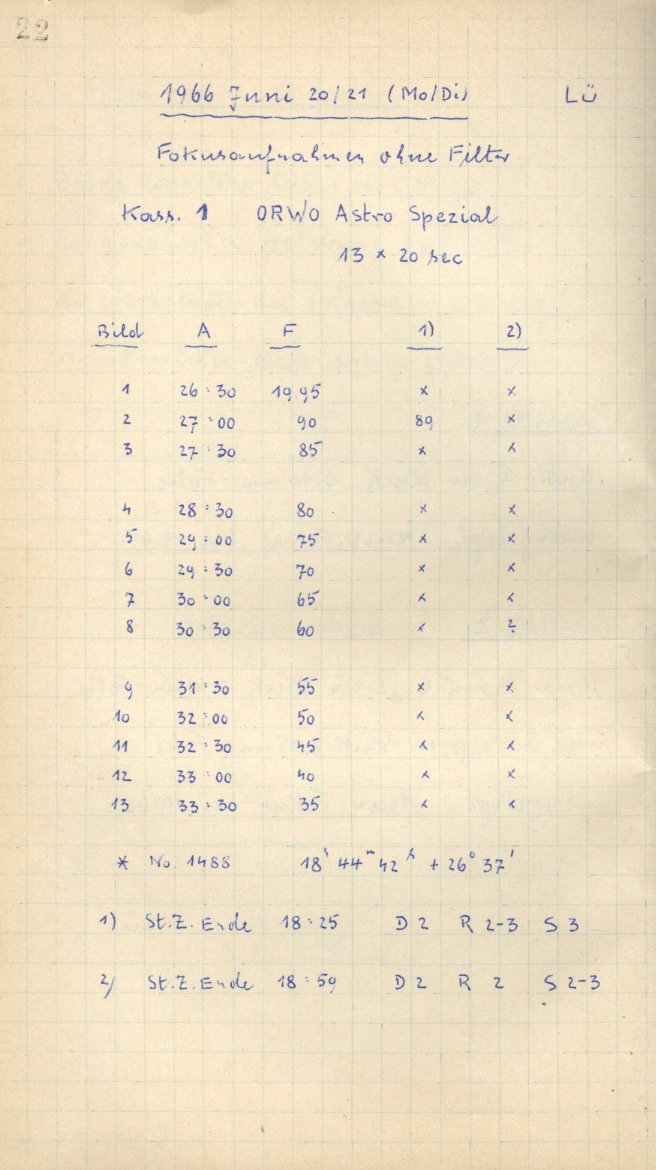 22
1966 Juni 20/21 (Mo/Di) LÜ
Fokusaufnahmen ohne Filter
Kass. 1 ORWO Astro Spezial
13 x 20 sec
Bild A F 1) 2)
1 26:30 19,95 x x
2 27:00 90 89 x
3 27:30 85 x x
4 28:30 80 x x
5 29:00 75 x x
6 29:30 70 x x
7 30:00 65 x x
8 30:30 60 x ?
9 31:30 55 x x
10 32:00 50 x x
11 32:30 45 x x
12 33:00 40 x x
13 33:30 35 x x
* No. 1488 18ʰ 44ᵐ 42ˢ + 26° 37'
1) St.Z. Ende 18:25 D 2 R 2-3 S 3
2) St.Z. Ende 18:59 D 2 R 2 S 2-3